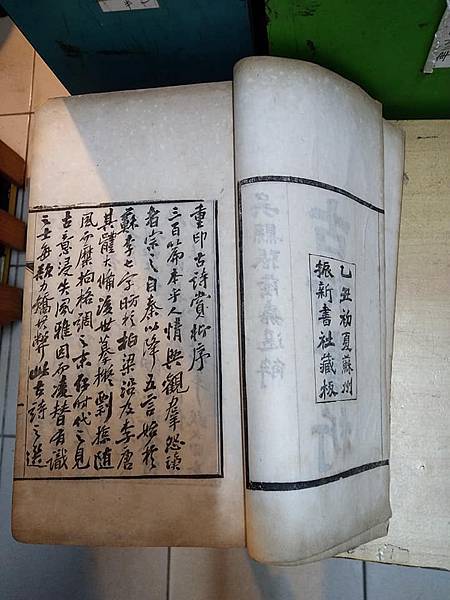 乙丑初夏蘇州
振新書社藏板
重印古詩賞析序
三百篇本乎人情興觀羣怨讀
者宗之自秦以降五言始於
蘇李七字昉於柏梁沿及李唐
其體大備後世摹擬剽隨
風而靡拘格調之末狃時代之見
古意浸失風雅因而凌替有識
之士每欲力矯其弊此古詩之選